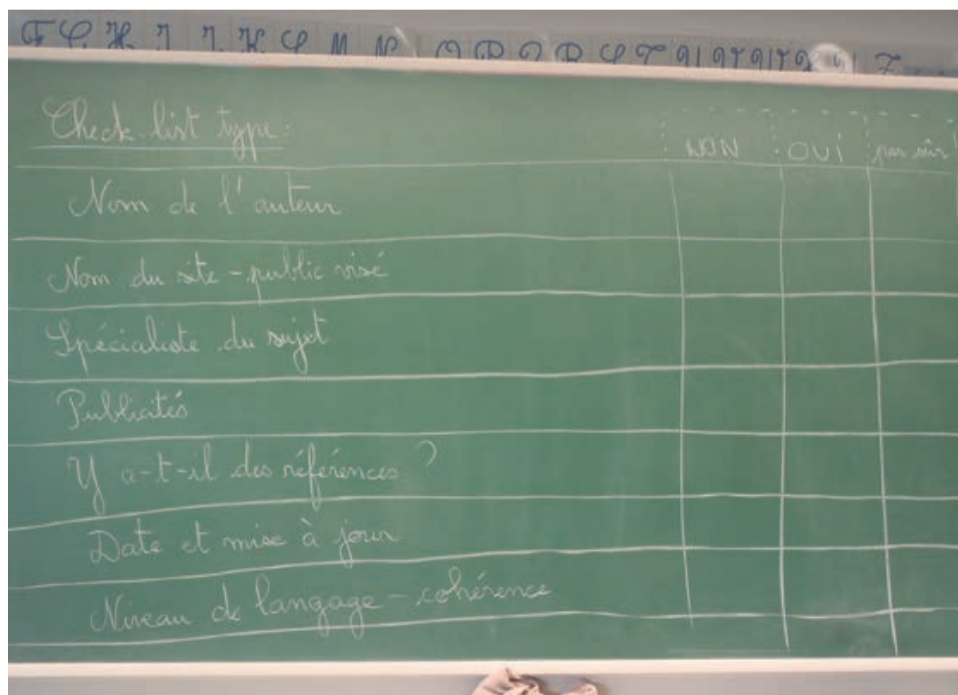 Check list type :
NON OUI pas sûr
Nom de l'auteur
Nom du site - public visé
Spécialiste du sujet
Publicités
Y a-t-il des références ?
Date et mise à jour
Niveau de langage - cohérence